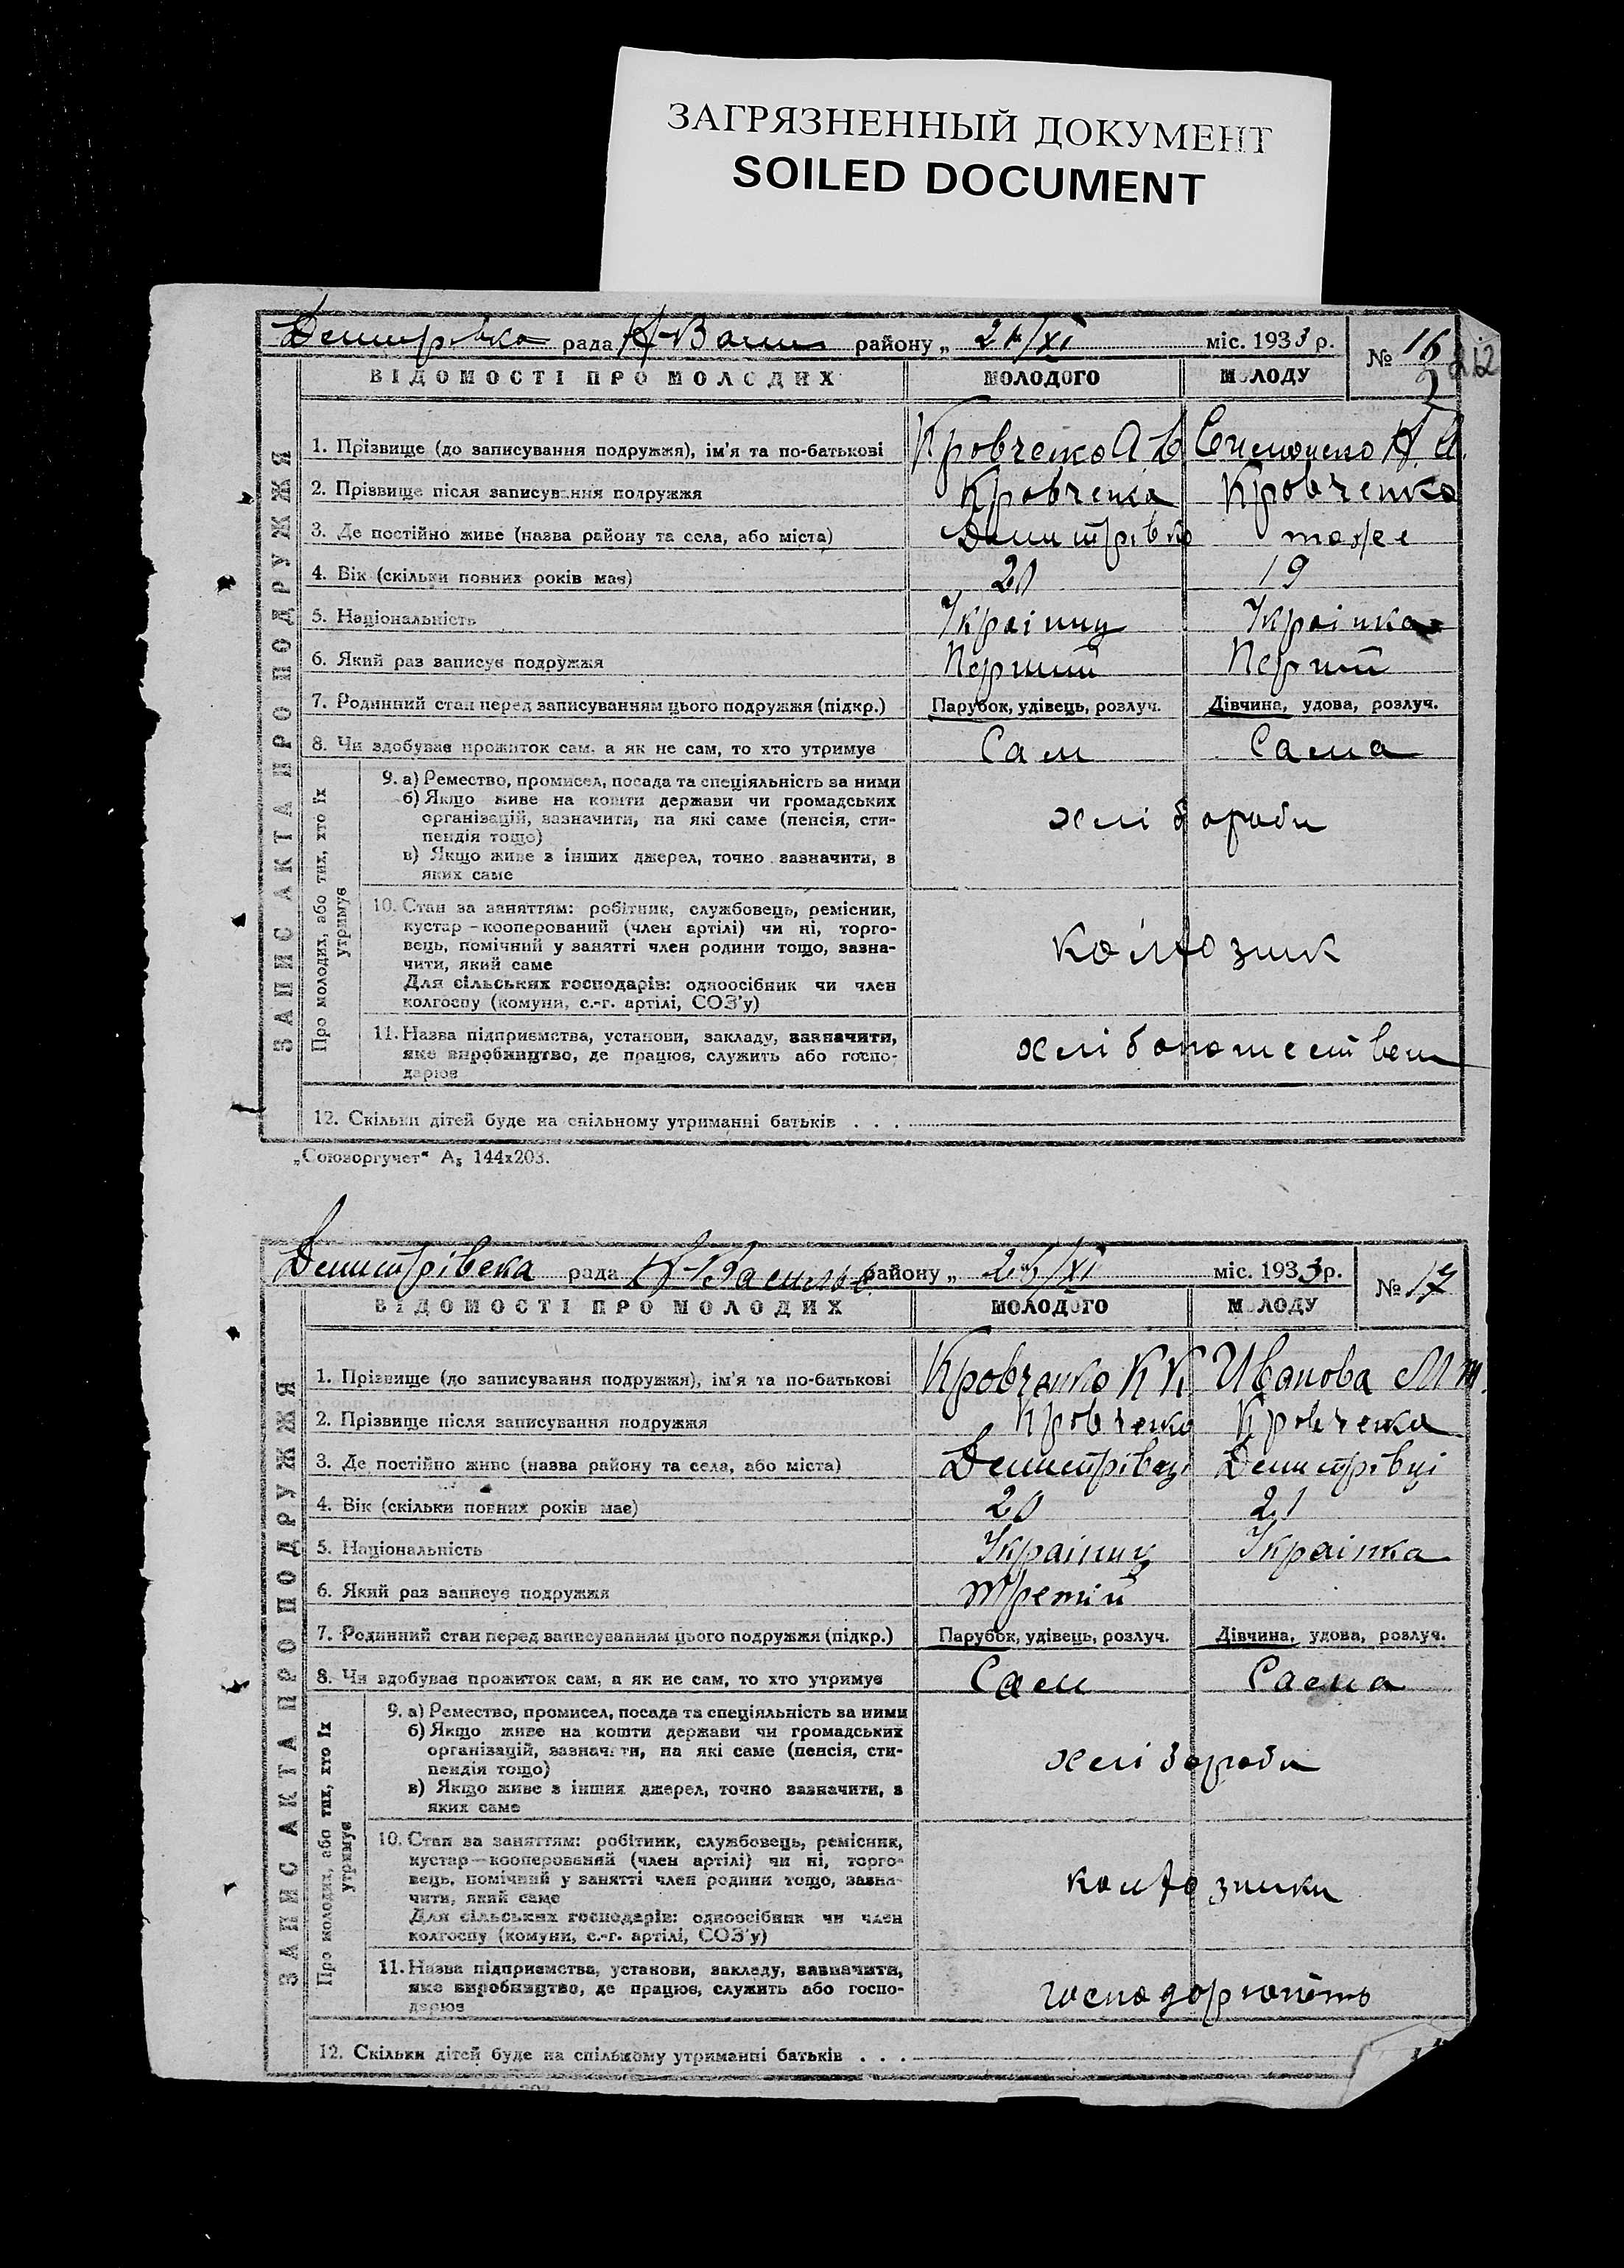 ЗАГРЯЗНЕННЫЙ ДОКУМЕНТ
SOILED DOCUMENT
рада району „ міс. 1933 р. № 16
212
ВІДОМОСТІ ПРО МОЛОДИХ МОЛОДОГО МОЛОДУ
ЗАПИС АКТА ПРО ПОДРУЖЖЯ
1. Прізвище (до записування подружжя), ім'я та по-батькові Кровченко А
2. Прізвище після записування подружжя Кровченко Кровченко
3. Де постійно живе (назва району та села, або міста) Демитрівко тоже
4. Вік (скільки повних років має) 20 19
5. Національність Українц Українка
6. Який раз записує подружжя Перший Перший
7. Родинний стан перед записуванням цього подружжя (підкр.) Парубок, удівець, розлуч. Дівчина, удова, розлуч.
8. Чи здобуває прожиток сам, а як не сам, то хто утримує Сам Сама
Про молодих, або тих, хто їх утримує
9. а) Ремество, промисел, посада та спеціяльність за ними
б) Якщо живе на кошти держави чи громадських
організацій, зазначити, на які саме (пенсія, сти-
пендія тощо)
хлібороби
в) Якщо живе з інших джерел, точно зазначити, з
яких саме
10. Стан за заняттям: робітник, службовець, ремісник,
кустар—кооперований (член артілі) чи ні, торго-
вець, помічний у занятті член родини тощо, зазна-
чити, який саме
колгозник
Для сільських господарів: одноосібник чи член
колгоспу (комуни, с.-г. артілі, СОЗ'у)
11. Назва підприємства, установи, закладу, зазначити,
яке виробництво, де працює, служить або госпо-
дарює
12. Скільки дітей буде на спільному утриманні батьків . . .
„Союзоргучет“ А₅ 144х203.
Демитрівска рада району „ міс. 1933 р. № 17
ВІДОМОСТІ ПРО МОЛОДИХ МОЛОДОГО МОЛОДУ
ЗАПИС АКТА ПРО ПОДРУЖЖЯ
1. Прізвище (до записування подружжя), ім'я та по-батькові Кровченко К К Иванова М т.
2. Прізвище після записування подружжя Кровченко Кровченко
3. Де постійно живе (назва району та села, або міста) Демитрівці Демитрівці
4. Вік (скільки повних років має) 20 21
5. Національність Українц Українка
6. Який раз записує подружжя третій
7. Родинний стан перед записуванням цього подружжя (підкр.) Парубок, удівець, розлуч. Дівчина, удова, розлуч.
8. Чи здобуває прожиток сам, а як не сам, то хто утримує Сам Сама
Про молодих, або тих, хто їх утримує
9. а) Ремество, промисел, посада та спеціяльність за ними
б) Якщо живе на кошти держави чи громадських
організацій, зазначити, на які саме (пенсія, сти-
пендія тощо)
хліборобы
в) Якщо живе з інших джерел, точно зазначити, з
яких саме
10. Стан за заняттям: робітник, службовець, ремісник,
кустар—кооперований (член артілі) чи ні, торго-
вець, помічний у занятті член родини тощо, зазна-
чити, який саме
колгозники
Для сільських господарів: одноосібник чи член
колгоспу (комуни, с.-г. артілі, СОЗ'у)
11. Назва підприємства, установи, закладу, зазначити,
яке виробництво, де працює, служить або госпо-
дарює
господорюють
12. Скільки дітей буде на спільному утриманні батьків . . .